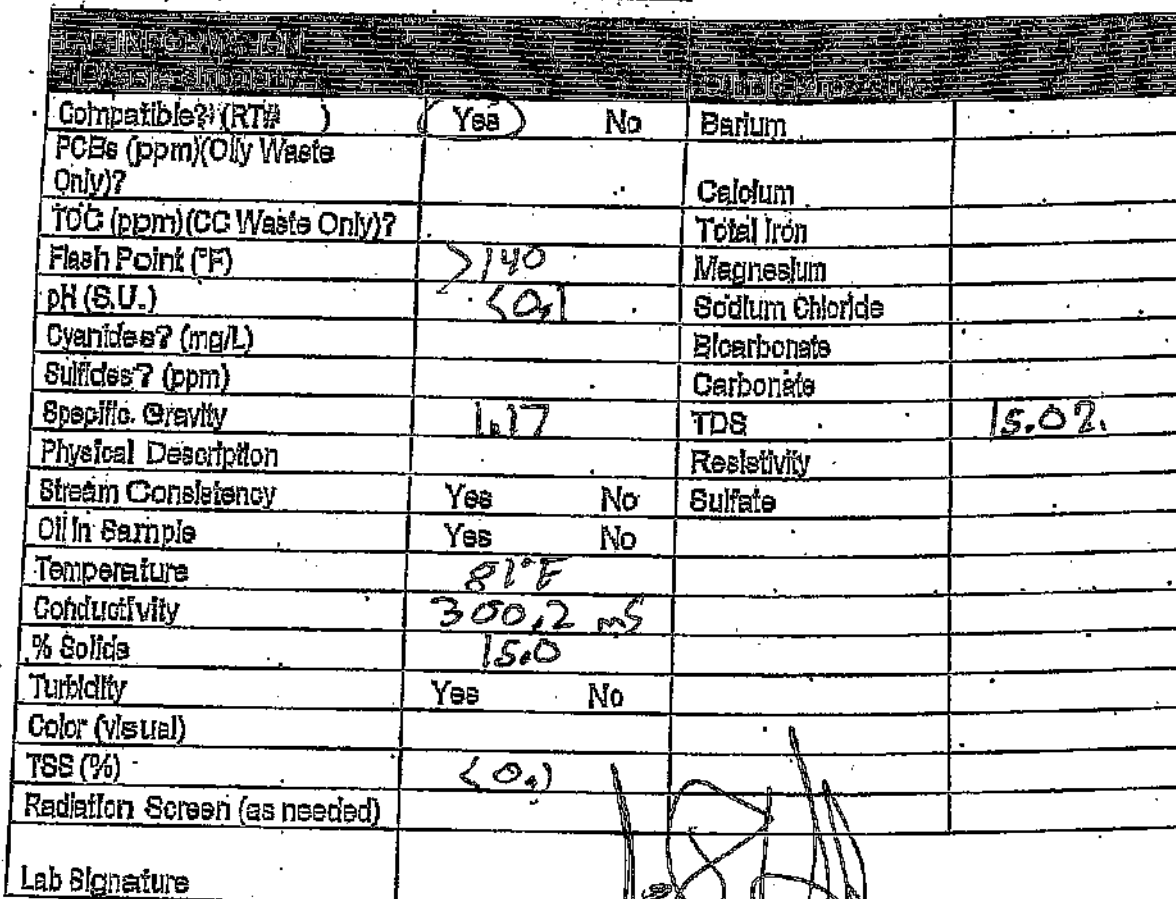 Compatible? (RT# ) Yes No Barium
PCBs (ppm)(Oily Waste
Only)? Calcium
TOC (ppm)(CC Waste Only)? Total Iron
Flash Point (°F) >140 Magnesium
pH (S.U.) <0.1 Sodium Chloride
Cyanides? (mg/L) Bicarbonate
Sulfides? (ppm) Carbonate
Specific Gravity 1.17 TDS 15.0%
Physical Description Resistivity
Stream Consistency Yes No Sulfate
Oil in Sample Yes No
Temperature 81°F
Conductivity 300.2 mS
% Solids 15.0
Turbidity Yes No
Color (visual)
TSS (%) <0.1
Radiation Screen (as needed)
Lab Signature